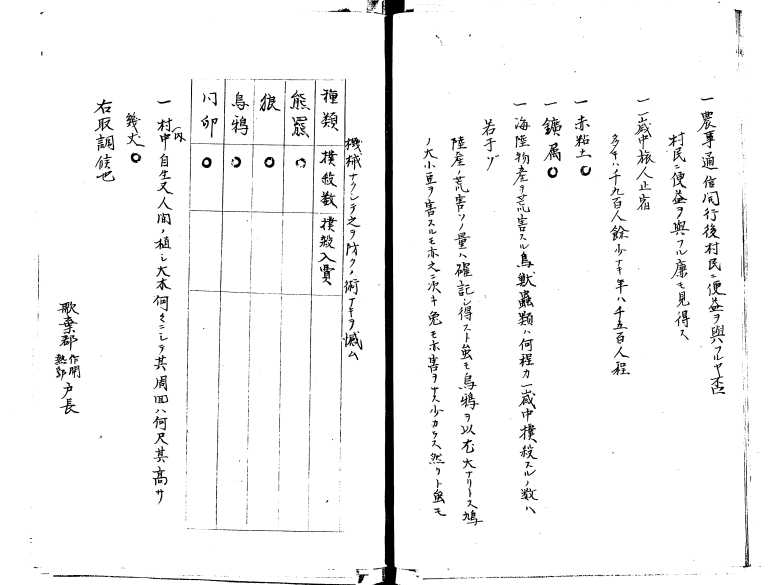 一 農事通信関行後村民ニ便益ヲ與フルヤ否
村民ニ便益ヲ與フル廉モ見得ス
一 一歳中旅人止宿
多キハ千九百人餘少ナキ年ハ千五百人程
一 赤粘土〇
一 鑛属〇
一 海陸物産ヲ荒害スル鳥獣蟲類ハ何程カ一歳中撲殺スルノ数ハ
若干ゾ
陸産ノ荒害ソノ量ハ確記シ得スト虽モ烏鴉ヲ以尤大ナリトス鳩
ノ大小豆ヲ害スルモ亦之ニ次キ兔モ亦害ヲナス少カラス然リト虽モ
機械ナクシテ之ヲ防クノ術ナキヲ憾ム
種類 撲殺数 撲殺入費
熊羆 〇
狼 〇
烏鴉 〇
川卯 〇
一 村内中ノ自生又人間ノ植シ大木何々ニシテ其周囲ハ何尺其高サ
幾丈〇
右取調候也
歌棄郡 作開 熱郛 戸長